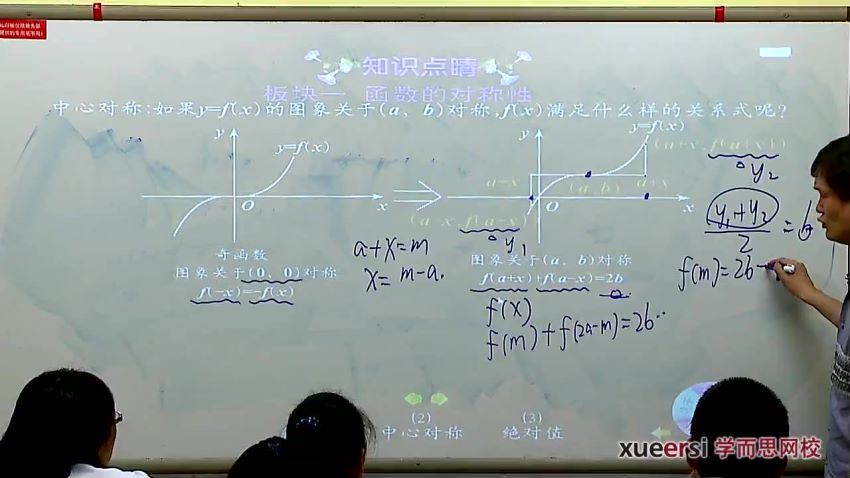 知识点睛
板块一 函数的对称性
中心对称:如果y=f(x)的图象关于(a、b)对称,f(x)满足什么样的关系式呢?
y
y=f(x)
O
x
奇函数
图象关于(0、0)对称
f(-x)=-f(x)
a+x=m
x=m-a.
y
y=f(x)
(a+x,f(a+x))
y2
a-x
(a,b)
a+x
O
x
(a-x,f(a-x))
y1
图象关于(a、b)对称
f(a+x)+f(a-x)=2b
f(x)
f(m)+f(2a-m)=2b
y1+y2
2
=b
f(m)=2b-
(2)
中心对称
(3)
绝对值
xueersi 学而思网校